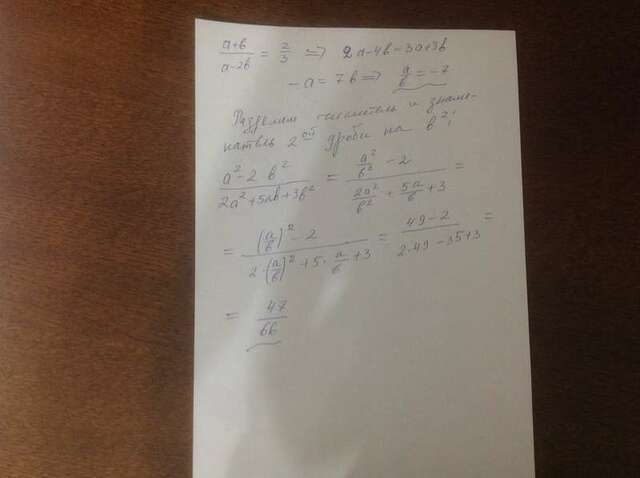 (a+b)/(a-2b) = 2/3 ⟹ 2a-4b=3a+3b
-a = 7b ⟹ a/b = -7
Разделим числитель и знаме-
натель 2ой дроби на b²:
(a²-2b²)/(2a²+5ab+3b²) = (a²/b² - 2)/(2a²/b² + 5a/b + 3) =
= ((a/b)² - 2)/(2·(a/b)² + 5·a/b + 3) = (49-2)/(2·49-35+3) =
= 47/66